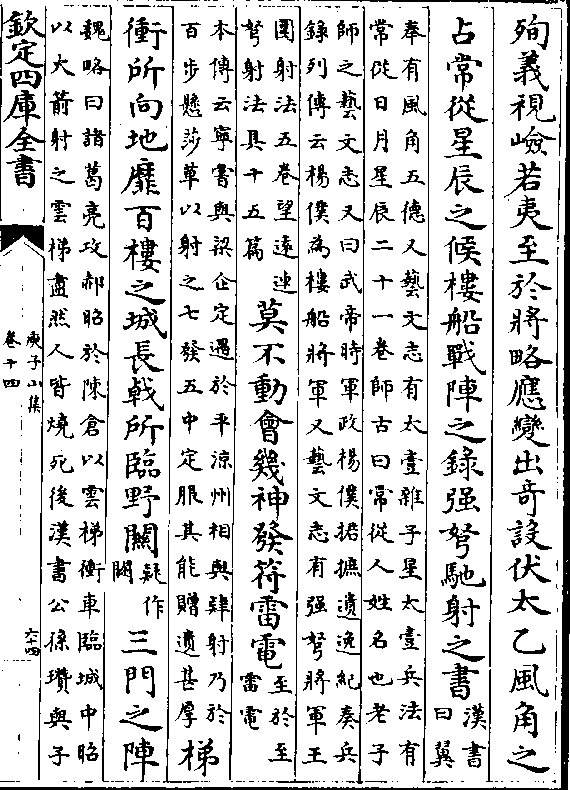 殉義視嶮若夷至於將略應變出奇設伏太乙風角之
占常從星辰之候樓船戰陣之錄强弩馳射之書漢書
曰翼
奉有風角五德又藝文志有太壹雜子星太壹兵法有
常從日月星辰二十一卷師古曰常從人姓名也老子
師之藝文志又曰武帝時軍政楊僕捃摭遺逸紀奏兵
錄列傳云楊僕為樓船將軍又藝文志有强弩將軍王
圍射法五卷望遠連
弩射法具十五篇
莫不動會幾神發符雷電至於至
雷電
本傳云寧嘗與梁企定遇於平涼州相與肄射乃於
百步懸莎草以射之七發五中定服其能贈遺甚厚
梯
衝所向地靡百樓之城長㦸所臨野疑作
三門之陣
魏略曰諸葛亮攻郝昭於陳倉以雲梯衝車臨城中昭
以大箭射之雲梯盡然人皆燒死後漢書公孫瓚與子
欽定四庫全書
庾子山集
卷十四
六四